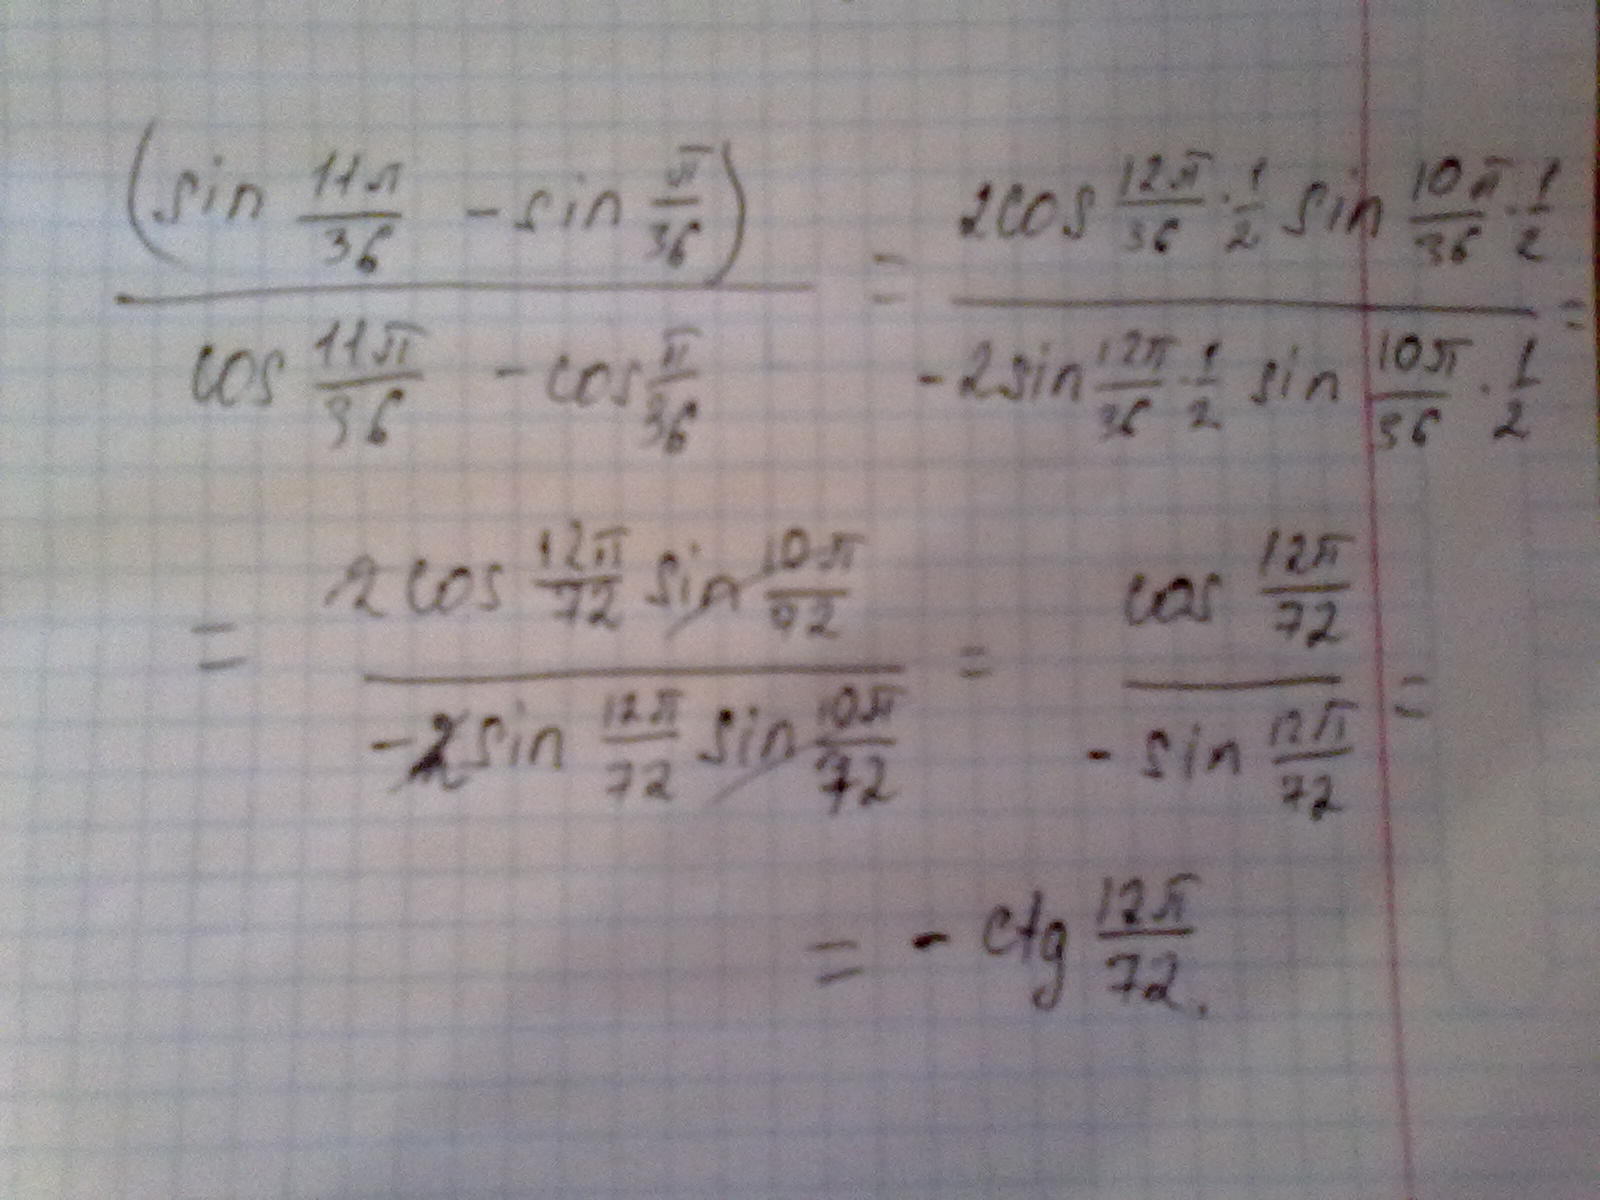 (sin 11π/36 - sin π/36) / (cos 11π/36 - cos π/36) = (2cos 12π/36 · 1/2 sin 10π/36 · 1/2) / (-2sin 12π/36 · 1/2 sin 10π/36 · 1/2) =
= (2cos 12π/72 sin 10π/72) / (-2sin 12π/72 sin 10π/72) = (cos 12π/72) / (-sin 12π/72) =
= - ctg 12π/72.